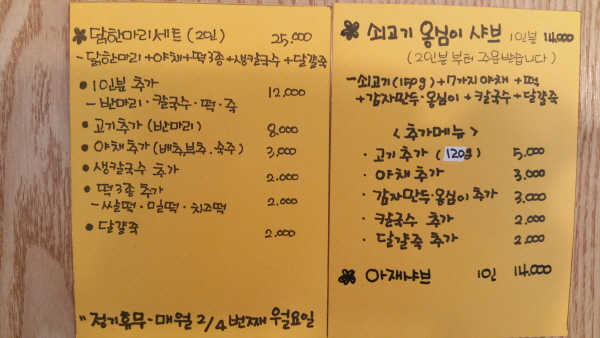 ※ 닭한마리세트 (2인) 25,000
- 닭한마리 + 야채 + 떡3종 + 생칼국수 + 달걀죽
● 1인분 추가 12,000
- 반마리 · 칼국수 · 떡 · 죽
● 고기추가 (반마리) 8,000
● 야채추가 (배추,부추,숙주) 3,000
● 생칼국수 추가 2,000
● 떡3종 추가
- 쌀떡 · 밀떡 · 치즈떡 2,000
● 달걀죽 2,000
" 정기휴무 - 매월 2/4 번째 월요일
※ 쇠고기 옹심이 샤브 1인분 14,000
(2인분 부터 주문받습니다)
- 쇠고기(150g) + 7가지야채 + 떡
+ 감자만두 · 옹심이 + 칼국수 + 달걀죽
< 추가메뉴 >
· 고기 추가 (120g) 5,000
· 야채 추가 3,000
· 감자만두 · 옹심이 추가 3,000
· 칼국수 추가 2,000
· 달걀죽 추가 2,000
※ 아재샤브 1인 14,000